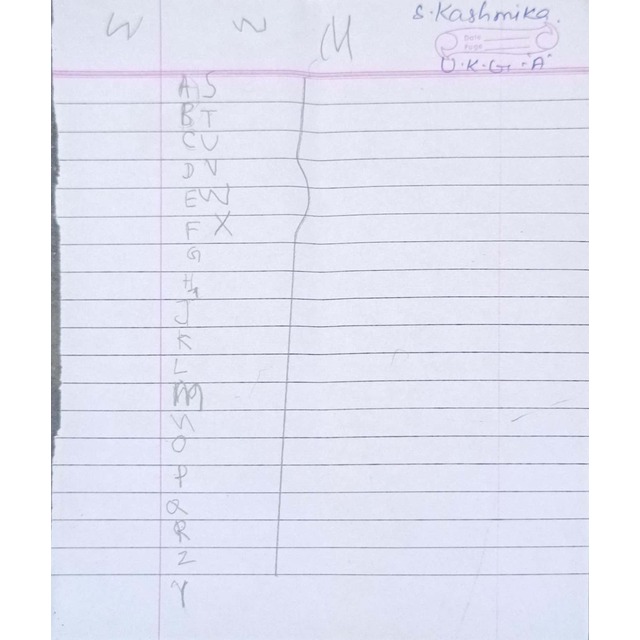 S. Kashmika.
W W M
Date
Page
U.K.G. "A"
A S
B T
C U
D V
E W
F X
G
H
J
K
L
M
N
O
P
Q
R
Z
Y